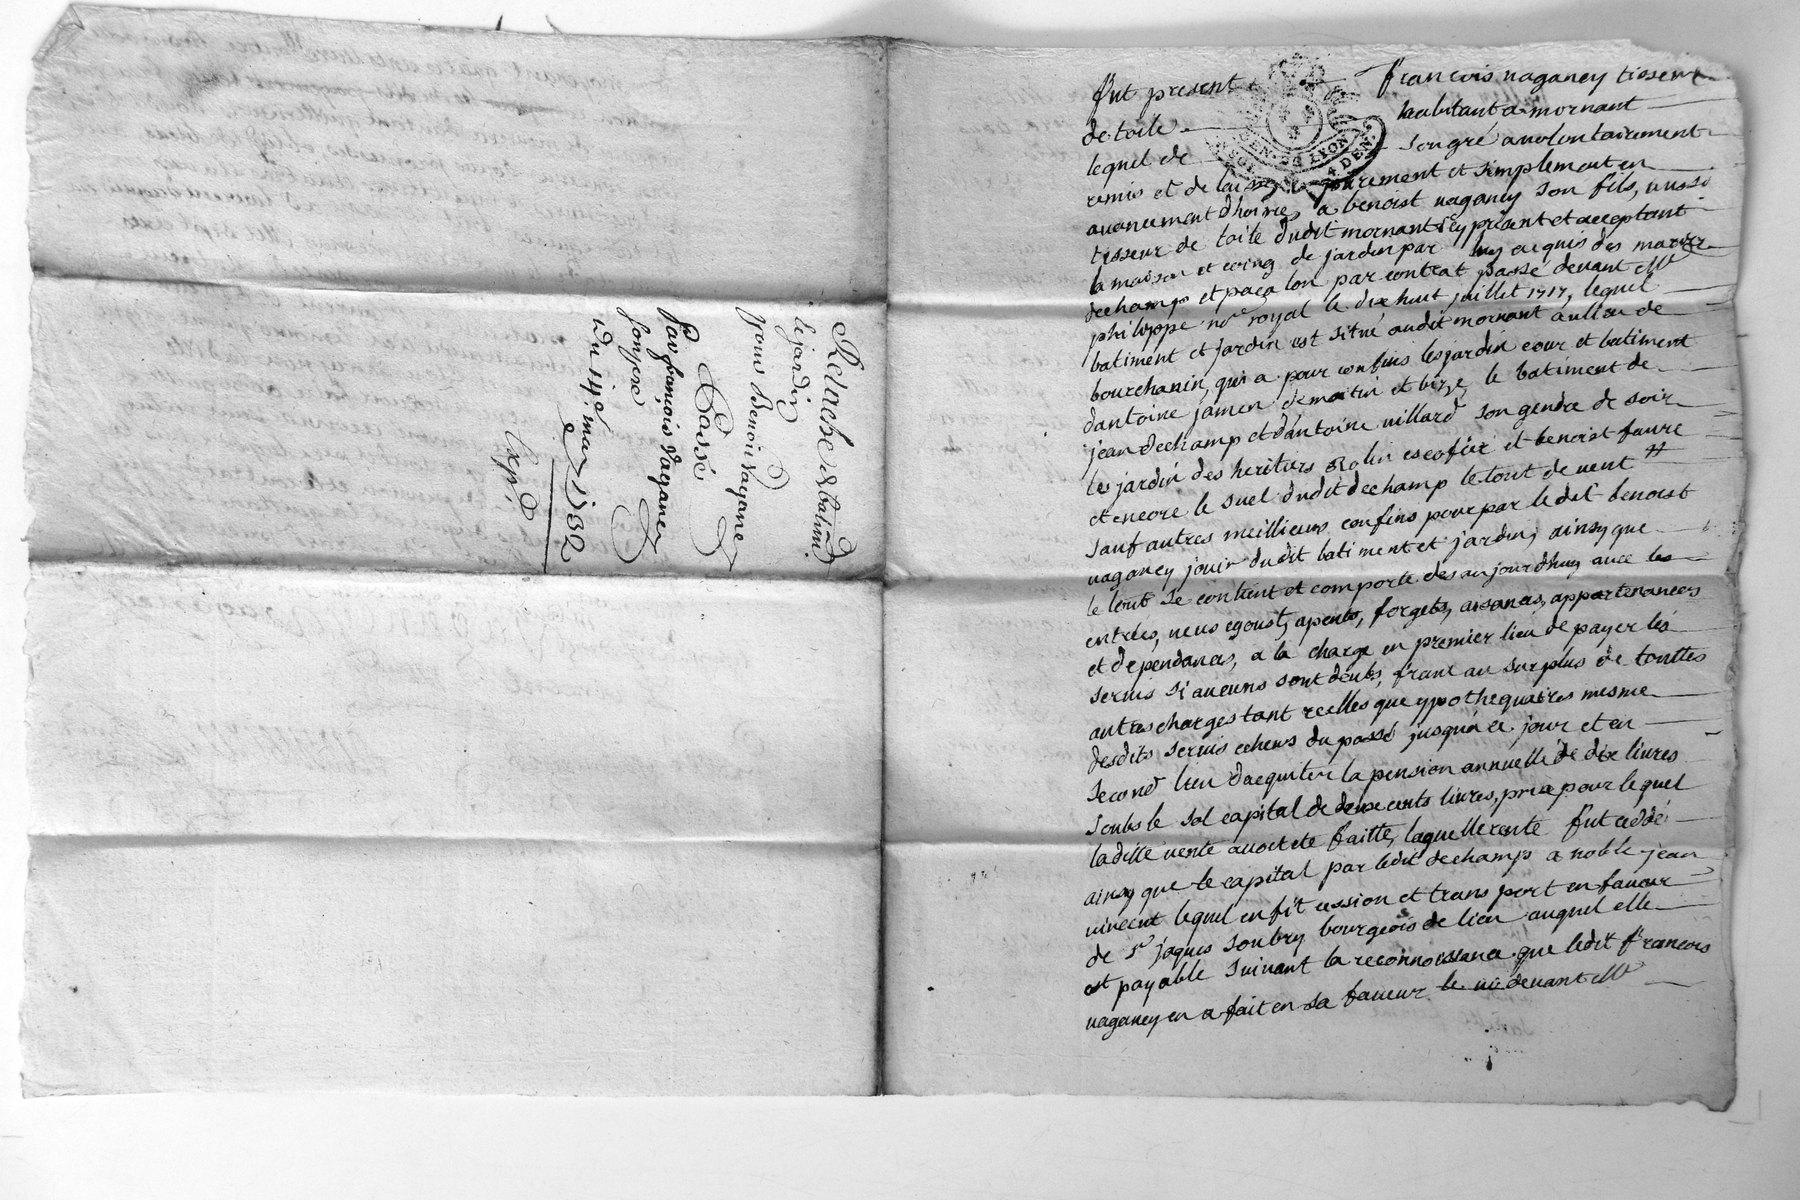 Relache de batim.
& jardin
pour Benoit Vaganey
Passé
Par françois Vaganey
son pere
Du 14e. mars 1732
Exp.
GEN. DE LYON
4 DEN.
fut present françois vaganey tisseur
de toile habitant a mornant
lequel de son gré a volontairement
remis et de laissé purement et simplement en
avancement dhoirie, a benoist vaganey son fils, aussi
tisseur de toile dudit mornant icy présent et acceptant
la maison et coing de jardin par luy acquis des mariez
dechamps et pacalon par contrat passé devant Me
philippe nre royal le dix huit juillet 1717, lequel
batiment et jardin est situé audit mornant au lieu de
bourchanin, qui a pour confins les jardin cour et batiment
dantoine jamen de matin et bize, le batiment de
jean dechamp et dantoine villard son gendre de soir
les jardin des heritiers Rolin escofier et benoist faure
et encore le suel dudit dechamp le tout de vent #
sauf autres meillieurs confins pour par ledit benoist
vaganey jouir dudit batiment et jardin, ainsy que
le tout se contient et comporte des aujourdhuy avec les
entrées, veues egoust, apents, forgets, aisances, appartenances
et dependances, a la charge en premier lieu de payer les
servis si aucuns sont deubs, franc au surplus de touttes
autres charges tant reelles que ypothequaires mesme
desdits servis echeus du passé jusqu'a ce jour et en
second lieu dacquiter la pension annuelle de dix livres
soubs le sol capital de deux cents livres, prix pour lequel
laditte vente avoit eté faitte, laquelle rente fut ceddé
ainsy que le capital par ledit dechamps a noble jean
vincent lequel en fit cession et trans port en faveur
de sr jaques soubry bourgeois de lieu auquel elle
est payable suivant la reconnoissance que ledit francois
vaganey en a fait en sa faveur devant Me